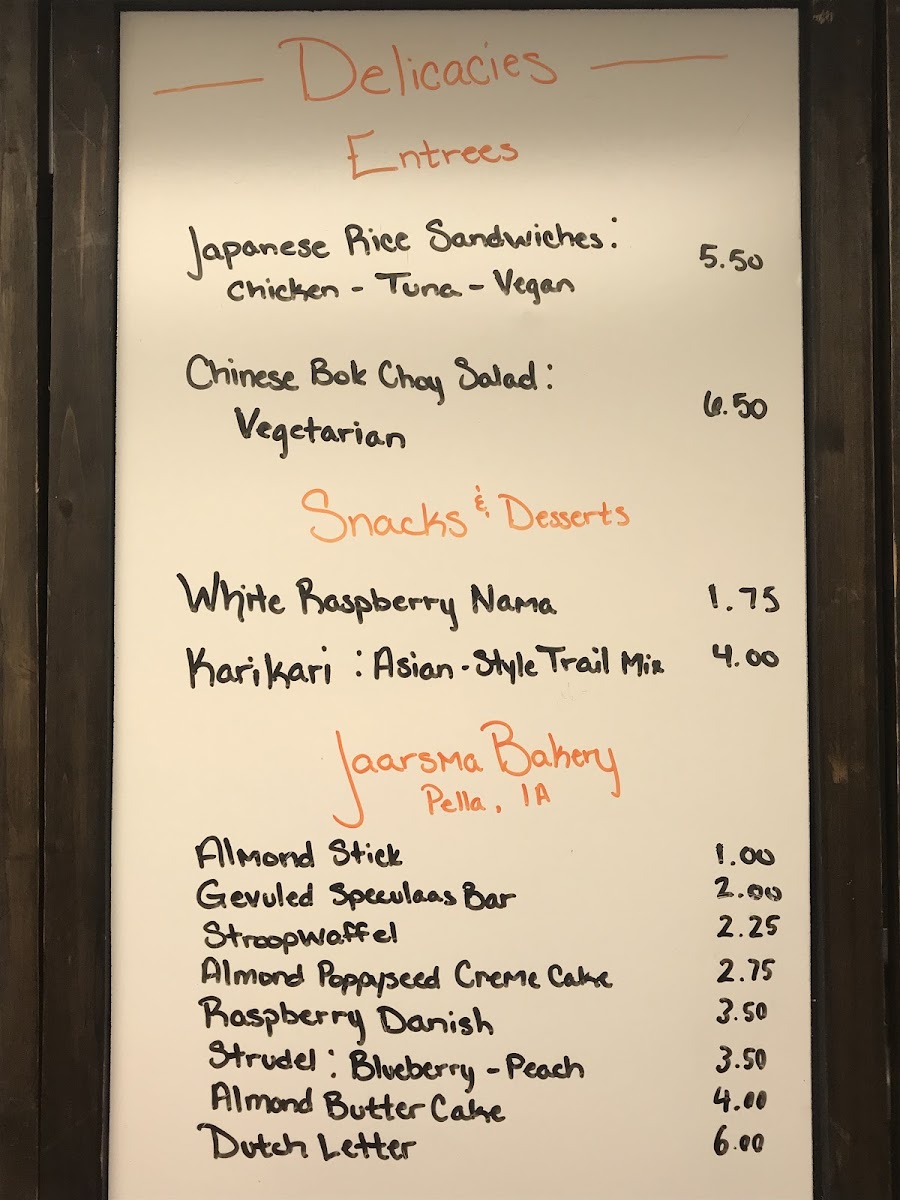 Delicacies
Entrees
Japanese Rice Sandwiches: 5.50
Chicken - Tuna - Vegan
Chinese Bok Choy Salad: 6.50
Vegetarian
Snacks & Desserts
White Raspberry Nama 1.75
Karikari : Asian-Style Trail Mix 4.00
Jaarsma Bakery
Pella, IA
Almond Stick 1.00
Gevuled Speculaas Bar 2.00
Stroopwaffel 2.25
Almond Poppyseed Creme Cake 2.75
Raspberry Danish 3.50
Strudel : Blueberry - Peach 3.50
Almond Butter Cake 4.00
Dutch Letter 6.00